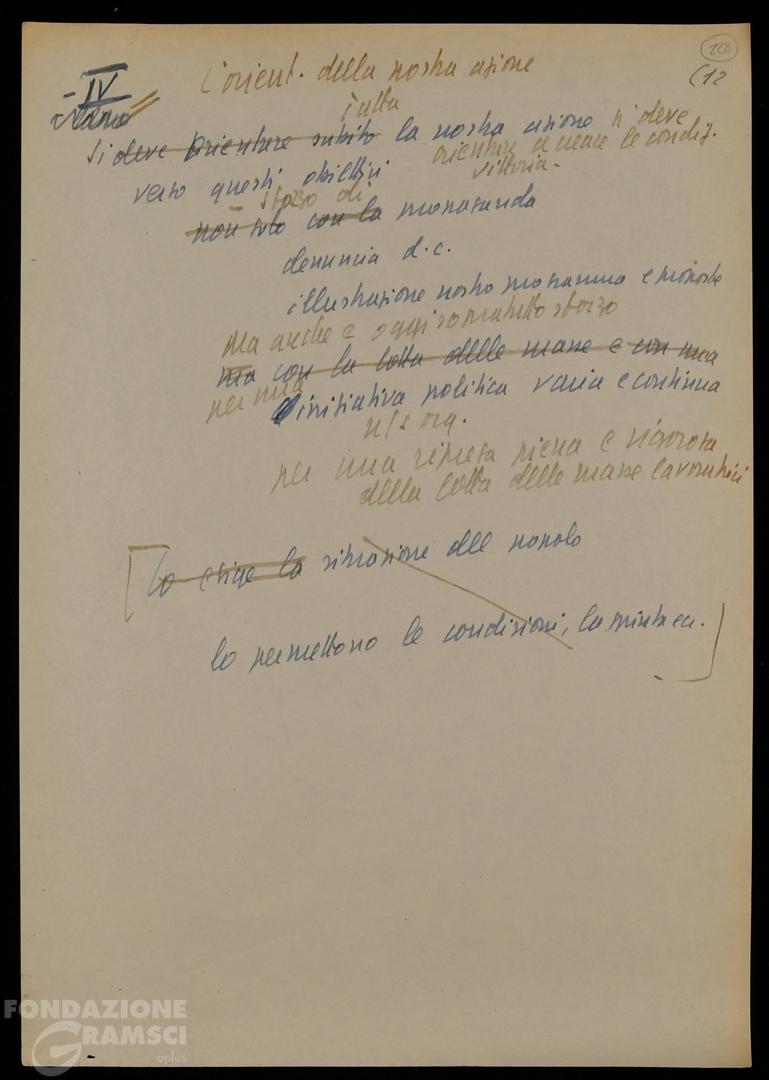 208
(12
IV
L'orient. della nostra azione
tutta
Si deve orientare subito la nostra azione si deve
orientare a creare le condiz.
verso questi obiettivi vittoria.
– sforzo di
non solo con la propaganda
denuncia d.c.
illustrazione nostro programma e proposte
Ma anche e oggi soprattutto sforzo
ma con la lotta delle masse e con una
per una
iniziativa politica varia e continua
n/s org.
per una ripresa piena e vigorosa
della lotta delle masse lavoratrici
Lo esige la situazione del popolo
lo permettono le condizioni, la spinta ecc.
FONDAZIONE
GRAMSCI
onlus